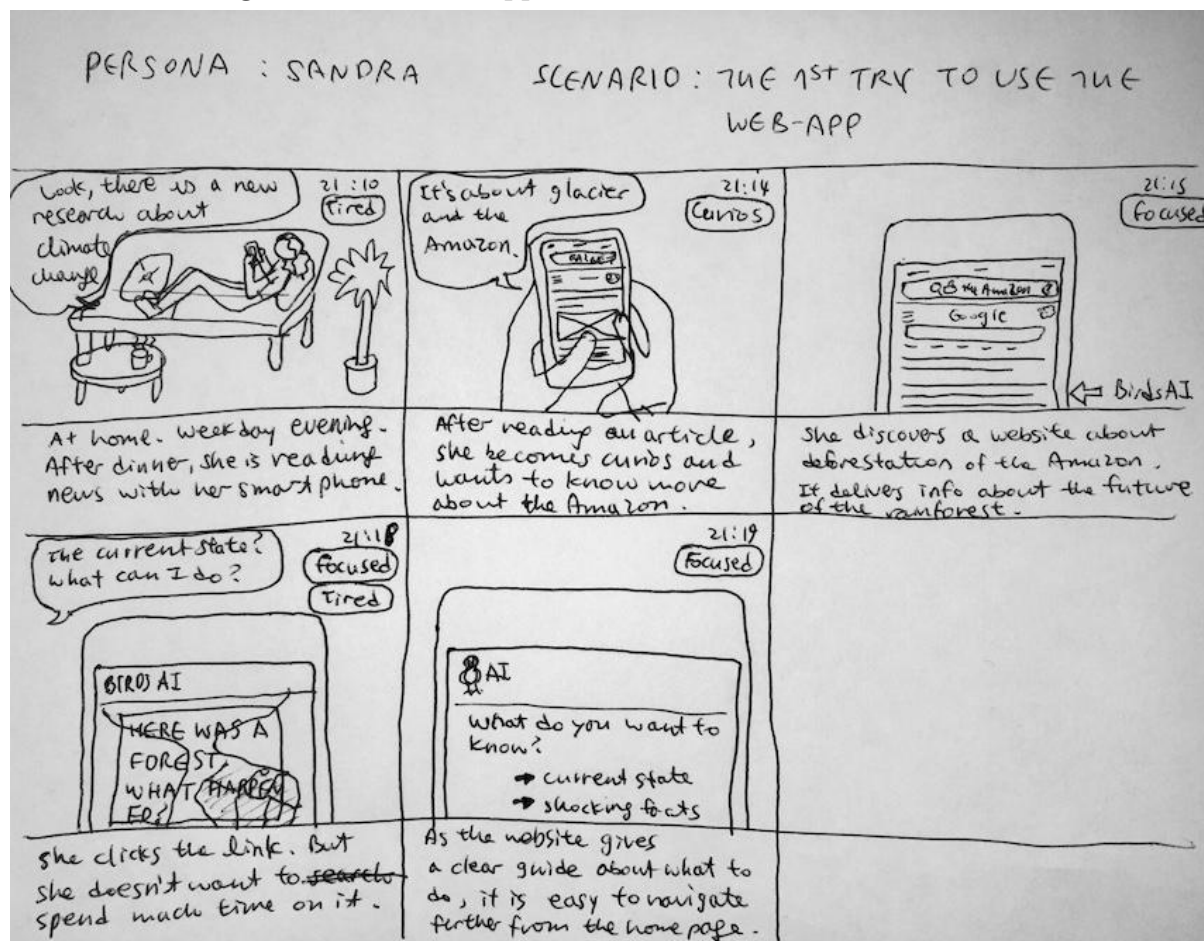 PERSONA : SANDRA
SCENARIO : THE 1ST TRY TO USE THE
WEB-APP
Look, there is a new
research about
climate
change
21:10
Tired
At home. Weekday evening.
After dinner, she is reading
news with her smart phone.
It's about glacier
and the
Amazon.
21:14
Curios
After reading an article,
she becomes curios and
wants to know more
about the Amazon.
21:15
focused
the Amazon
Google
BirdsAI
She discovers a website about
deforestation of the Amazon.
It delivers info about the future
of the rainforest.
The current state?
What can I do?
21:18
focused
Tired
BIRDS AI
HERE WAS A
FOREST,
WHAT HAPPEN
ED?
She clicks the link. But
she doesn't want to search
spend much time on it.
21:19
Focused
AI
What do you want to
know?
→ current state
→ shocking facts
As the website gives
a clear guide about what to
do, it is easy to navigate
further from the home page.